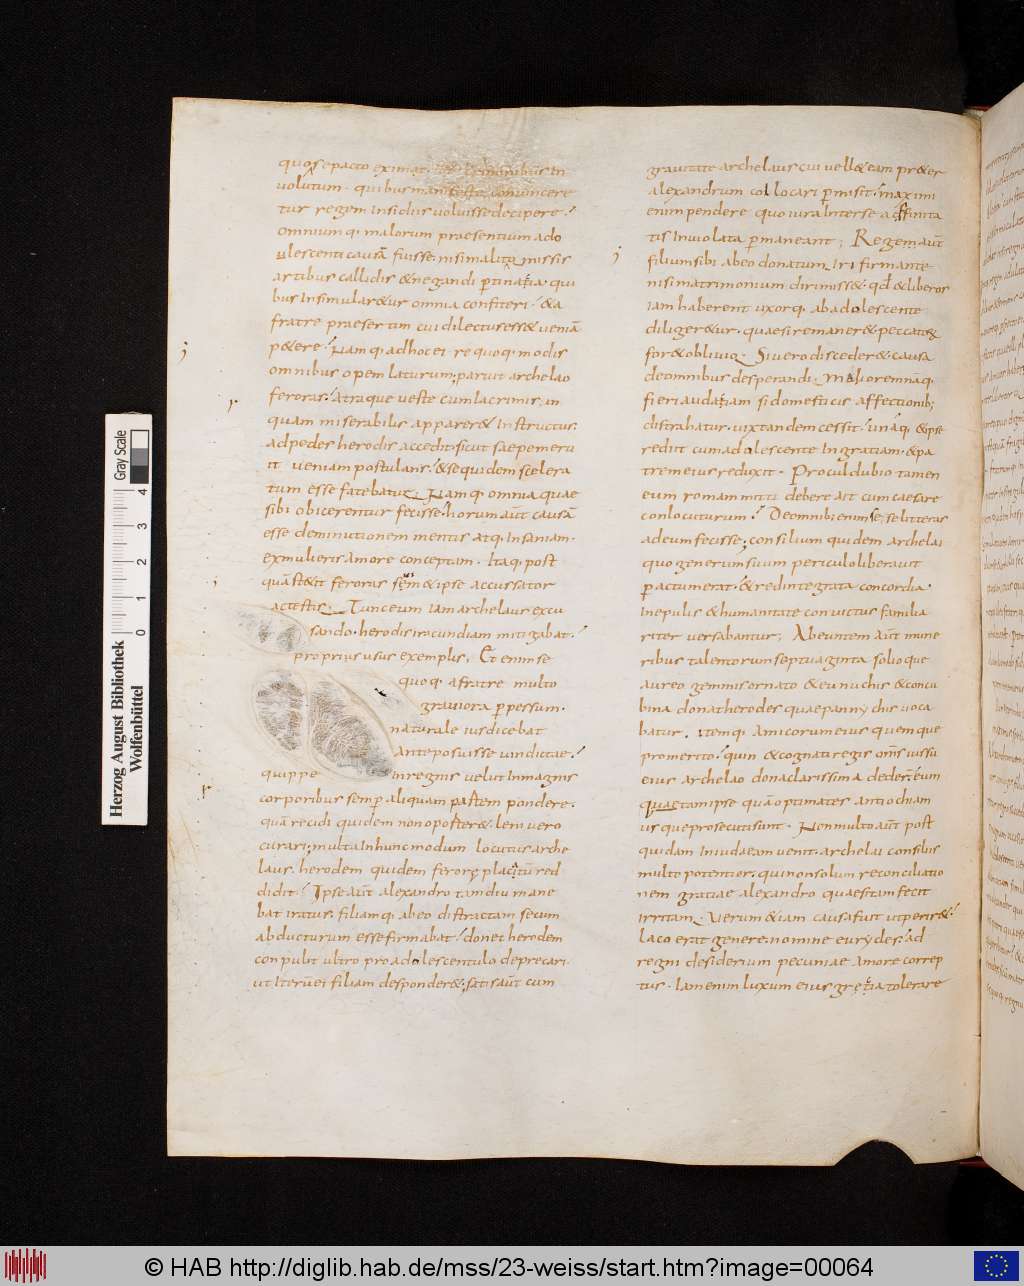 quosepacto eximat criminibus In
uolutum· quibus manifeste conuincere
tur regem Insidiis uoluisse decipere·
omnium q· malorum praesentium ado
lescenti causā fuisse nisi malitę missis
artibus callidis & negandi ptinatia· qui
bus Insimular&ur omnia confiteri· &a
fratre praesertim cui dilectus ess& ueniā
p&ere· Namq· adhoc ei se quoq· modis
omnibus opem laturum; paruit archelao
feroras· atraque ueste cum lacrimis, ut
quam miserabilis apparer& Instructus·
ad pedes herodis accedit· sicut saepe meru
it ueniam postulans· & se quidem scelera
tum esse fatebatur· Namq· omnia quae
sibi obicerentur fecisse· horum aūt causā
esse deminutionem mentis atq· Insaniam·
ex mulieris amore conceptam· Itaq· post
quā stetit feroras suus & ipse accussator
ac testis· Tunc eum iam archelaus excu
sando· herodis iracundiam mitigabat·
propriis usus exemplis· Et enim se
quoq· a fratre multo
grauiora ppessum·
naturale ius dicebat
Anteposuisse uindictae·
quippe Inregnis uelut In magnis
corporibus semp aliquam partem pondere·
quā recidi quidem non oporter&· leni uero
curari; multa In hunc modum locutus arche
laus· herodem quidem feroræ placatū red
didit· Ipse aūt alexandro tamdiu mane
bat iratus· filiamq· ab eo distractam secum
abducturum esse firmabat· donec herodem
conpulit ultro pro adolescentulo deprecari·
ut Iterū ei filiam desponder&; satis aūt cum
grauitate archelaus cui uell& eam pr&er
alexandrum collocari pmisit· maximi
enim pendere quo iura Inter se affinita
tis Inuiolata pmaneant; Regem aūt
filium sibi ab eo donatum Iri firmante
nisi matrimonium dirimiss&· qđ & liberos
iam haberent uxorq· ab adolescente
diliger&ur· quae si remaner& peccatis
for& obliuio· Si uero disceder& causa
de omnibus desperandi· Maliorem namq·
fieri audatiam si domesticis affectionib;
distrahatur· uix tandem cessit· unaq· & ipse
rediit cum adolescente In gratiam· & pa
trem eius reduxit· Procul dubio tamen
eum romam mitti debere ait cum caesare
conlocuturum· De omnib; enim se litteras
ad eum fecisse; consilium quidem archelai
quo generum suum periculo liberauit
pactum erat· & redintegrata concordia
In epulis & humanitate conuictus familia
riter uersabantur; Abeuntem aūt mune
ribus talentorum septuaginta solioque
aureo gemmis ornato & eunuchis & concu
bina donat herodes quae pannychis uoca
batur· Itemq· amicorum eius quemque
pro merito· quin & cognati regis omīs iussu
eius archelao dona clarissima dederunt eum
quae tam ipse quā optimates antiochiam
usque prosecuti sunt· Non multo aūt post
quidam In iudaeam uenit· archelai consiliis
multo potentior· qui non solum reconciliatio
nem gratiae alexandro quaesitam fecit
irritam· Uerum &iam causa fuit ut perir&·
laco erat genere· nomine eurycles· ad
regni desiderium pecuniae amore correp
tus· Iam enim luxum eius grętia tolerare
Gray Scale
0 1 2 3 4
Herzog August Bibliothek
Wolfenbüttel
© HAB http://diglib.hab.de/mss/23-weiss/start.htm?image=00064